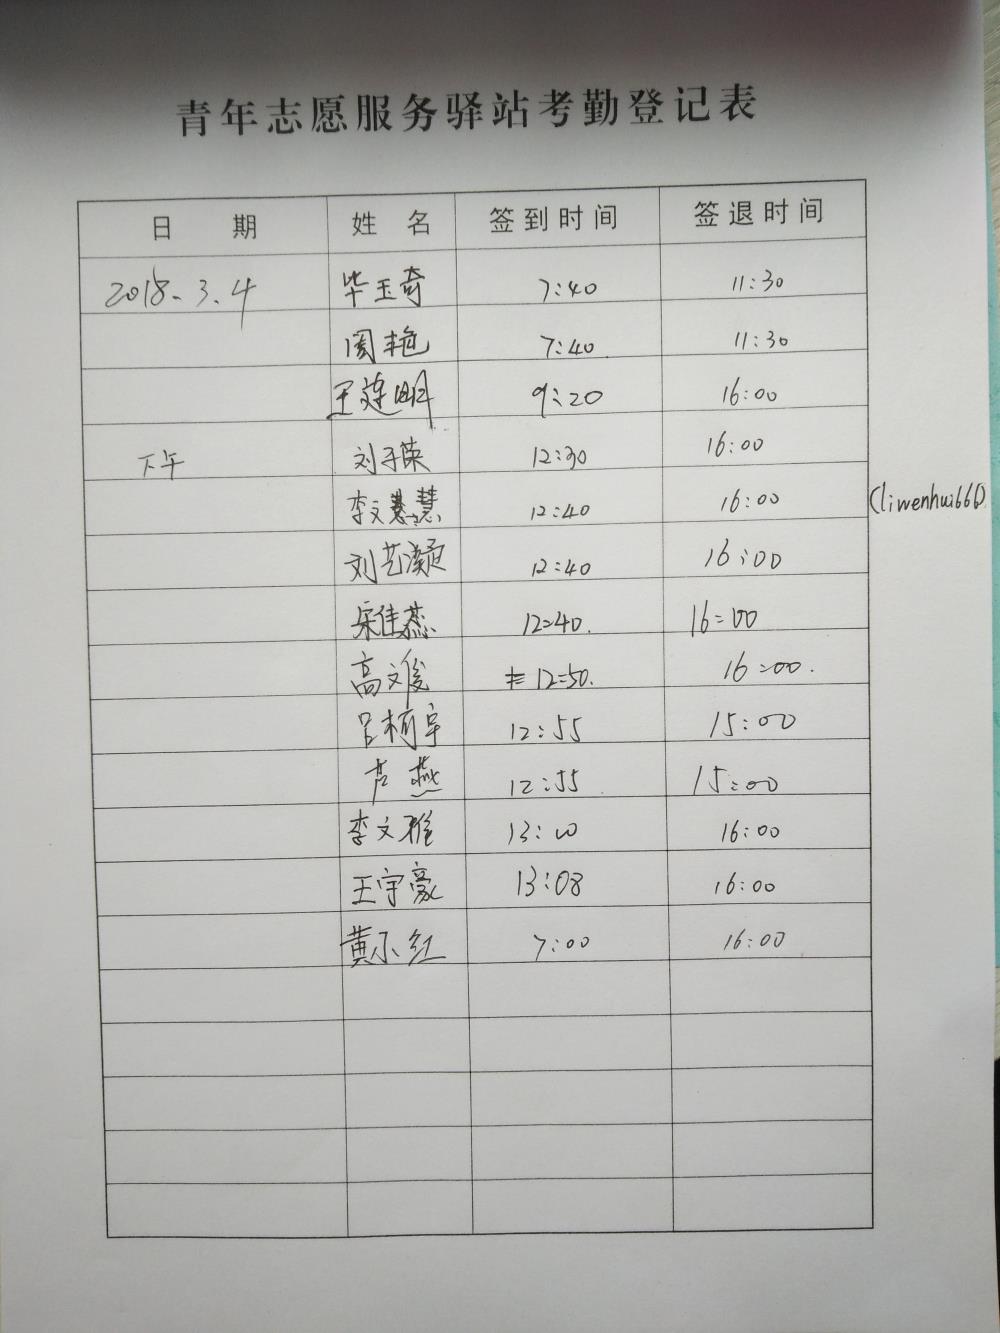 青年志愿服务驿站考勤登记表
日 期 姓 名 签到时间 签退时间
2018.3.4 毕玉奇 7:40 11:30
周艳 7:40 11:30
王建明 9:20 16:00
下午 刘子荣 12:30 16:00
李文慧 12:40 16:00 (liwenhui666)
刘艺灏 12:40 16:00
宋佳蕊 12:40. 16:00
高文俊 12:50. 16:00.
吕柯宇 12:55 15:00
芦燕 12:55 15:00
李文雅 13:00 16:00
王宇豪 13:08 16:00
黄小红 7:00 16:00